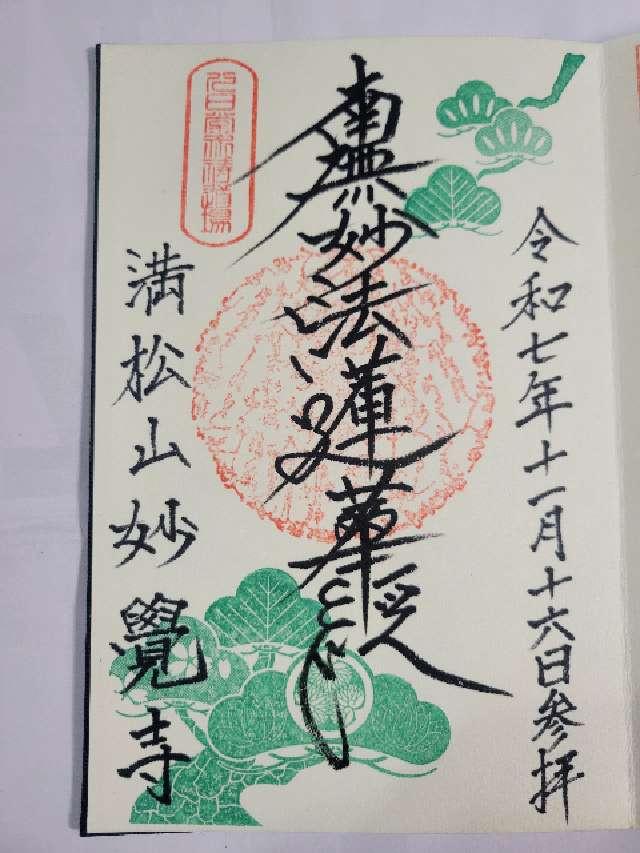 令和七年十一月十六日参拝
南無妙法蓮華経
満松山妙覺寺